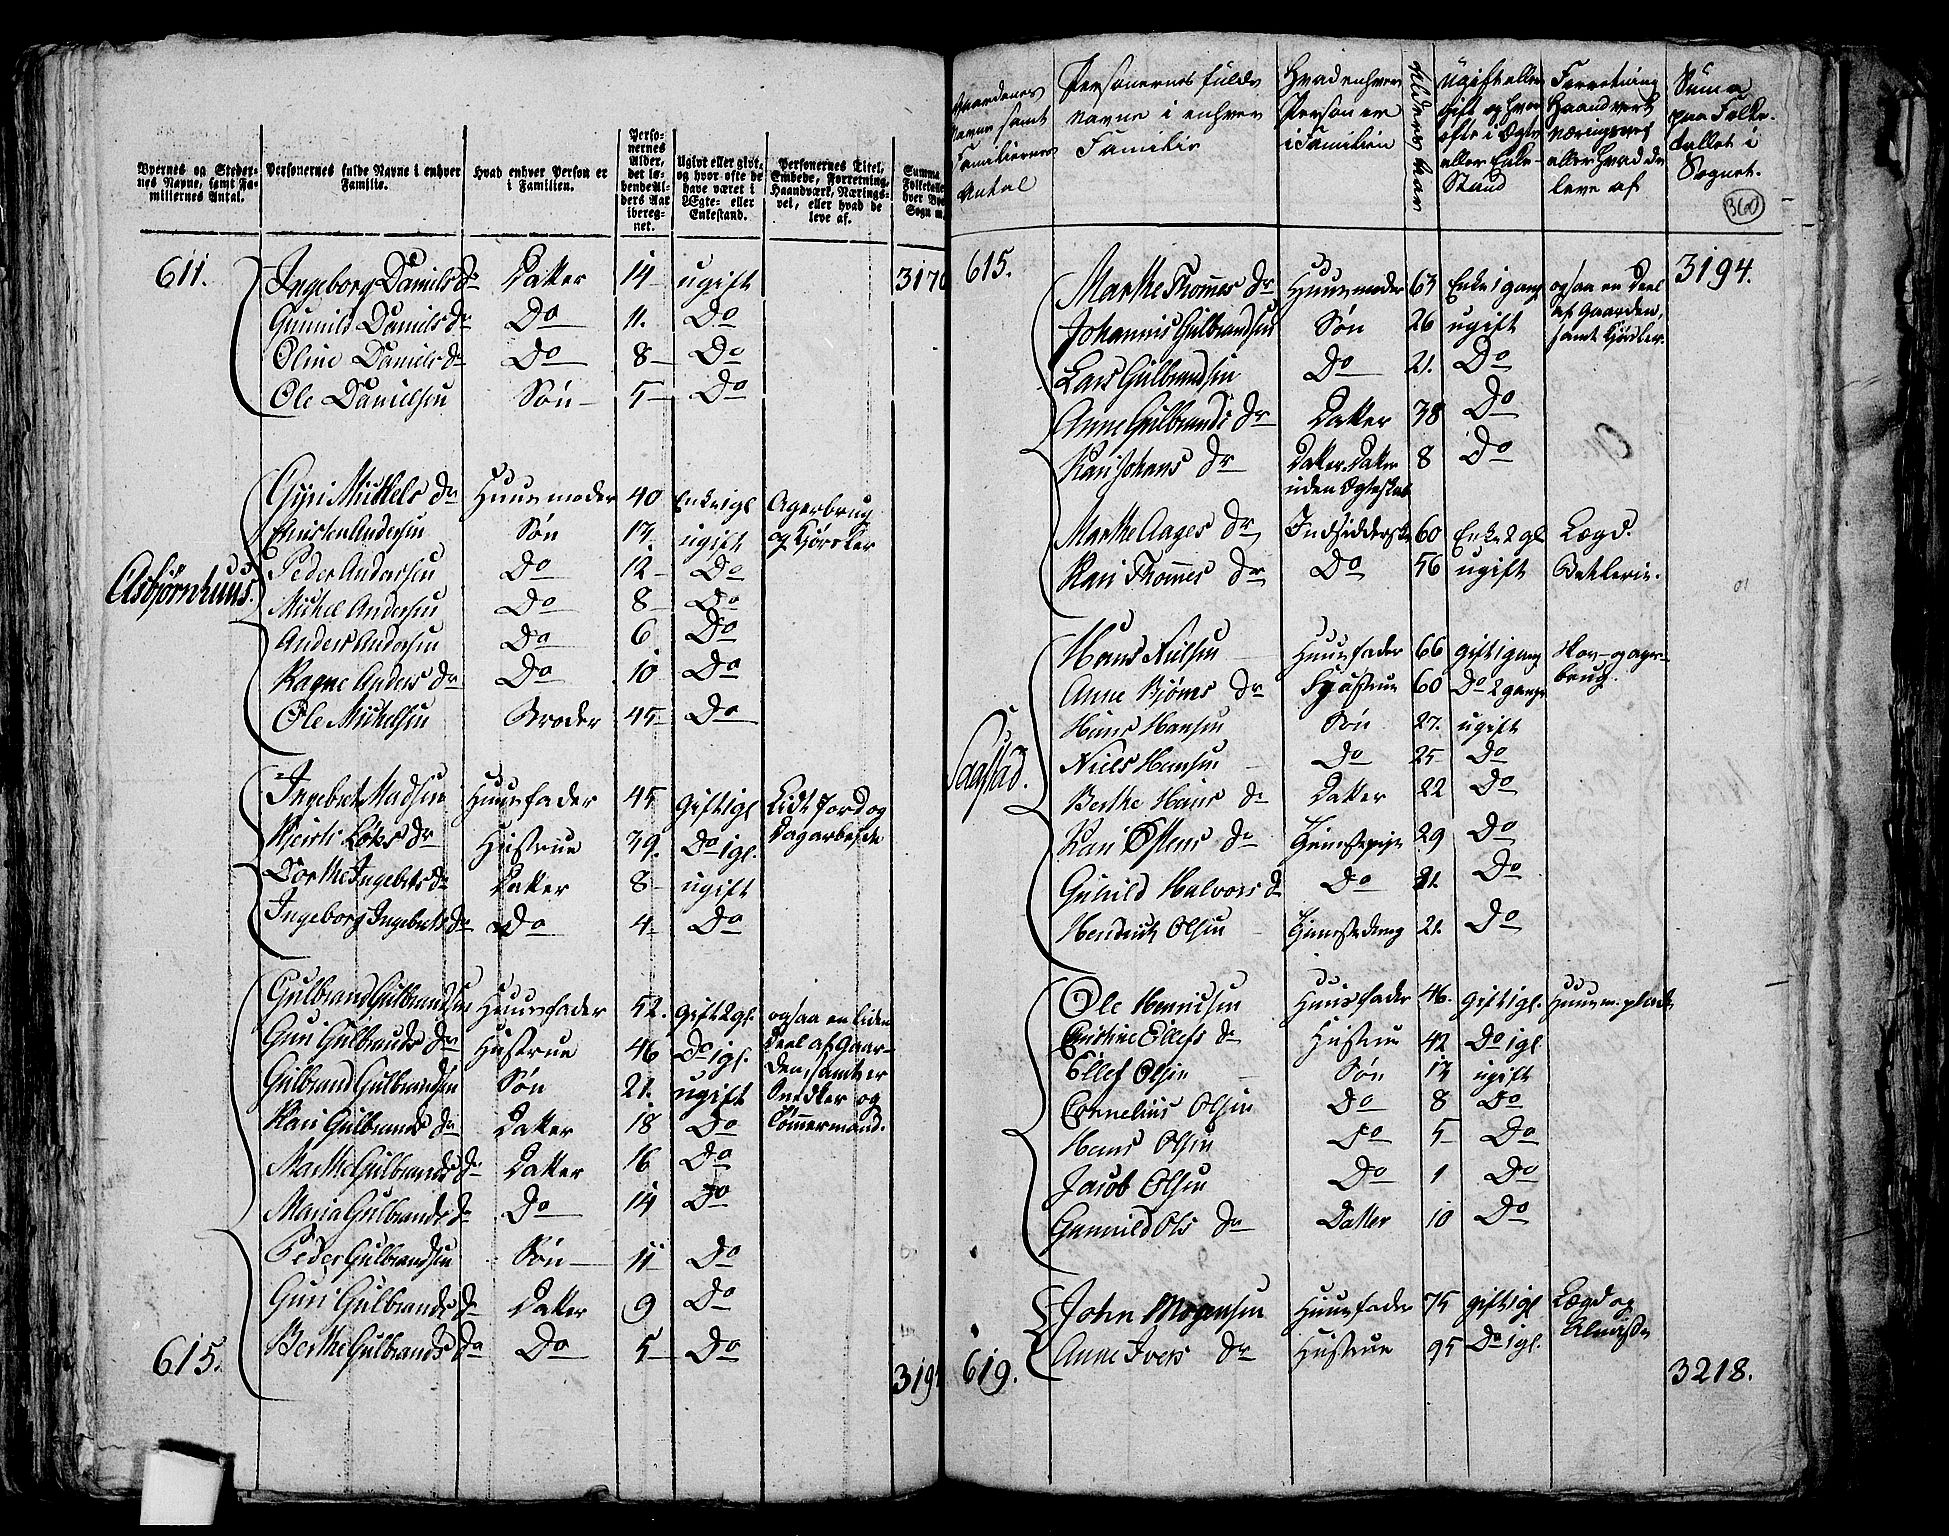 Byernes og Steder-
nes Navne, samt Fa-
miliernes Antal.
Personernes fulde Navne i enhver
Familie.
Hvad enhver Person er
i Familien.
Perso-
nernes
Alder,
det lø-
bende Al-
ders Aar
iberegnet.
Ugivt eller givt,
og hvor ofte de
have været i
Ægte- eller
Enkestand.
Personernes Titel,
Embede, Forretning,
Haandværk, Nærings-
vei, eller hvad de
leve af.
Summa
Folketalle
hver By
Sogn
611. Ingeborg Daniels Dr Datter 14 ugift 3170
Gunnild Daniels Dr Do 11. Do
Oline Daniels Dr Do 8 Do
Ole Danielsen Søn 5 Do
Asbjørnhuus.
Gyri Mikkels Dr Huusmoder 40 Enke 1 gl Agerbrug
Andersen Søn 17. ugift og Kjørsler
Peder Andersen Do 12 Do
Michel Andersen Do 8 Do
Anders Andersen Do 6 Do
Ragne Anders Dr Do 10 Do
Ole Michelsen Broder 45 Do
Ingebret Madsen Huusfader 45 Gift 1 gl Lidt Jord og
Kjersti Dr Hustrue 39. Do 1 gl. Dagarbejde
Dorthe Ingebrets Dr Datter 8 ugift
Ingeborg Ingebrets Dr Do 4 Do
Gulbrand Gulbrandsen Huusfader 52. Gift 2 gl. ogsaa en liden
Guri Gulbrands Dr Hustrue 46 Do 1 gl. Deel af Gaar-
Gulbrand Gulbrandsen Søn 21. ugift den, samt er
Kari Gulbrands Dr Datter 18 Do Snedker og
Marthe Gulbrands Dr Datter 16 Do Tømmermand.
Maria Gulbrands Dr Do 14 Do
Peder Gulbrandsen Søn 11 Do
Guri Gulbrands Dr Datter 9 Do
615. Berthe Gulbrands Dr Do 5 Do
319
Gaardenes
Navne samt
Familiernes
Antal
Personernes fulde
navne i enhver
Familie
Hvad enhver
Person er
i Familien
Alders Aar
Ugift eller
gift og hvor
ofte i Ægte
eller Enke-
Stand
Forretning
Haandverk
næringsvei
eller hvad de
leve af
Summa
paa Folke-
tallet i
Sognet.
360
615. Marthe Thommes Dr Huusmoder 63 Enke 1 gang ogsaa en Deel 3194.
Johannis Gulbrandsen Søn 26 ugift af Gaarden,
Lars Gulbrandsen Do 21. Do samt Kjørsler.
Anne Gulbrands Dr Datter 38 Do
Kari Johans Dr Datter Datter 8 Do
uden Ægteskab
Marthe Aages Dr Indsidderske 60 Enke 2 gl Lægd.
Kari Thommes Dr Do 56 ugift Betlerie.
Saastad.
Hans Nielsen Huusfader 66 gift 1 gang Skov- og ager-
Anne Bjørns Dr Hustrue 60 Do 2 gange brug.
Hans Hansen Søn 27. ugift
Niels Hansen Do 25 Do
Berthe Hans Dr Datter 22 Do
Kari Ostens Dr Tienestepige 29 Do
Gunild Halvors Dr Do 21. Do
Hendrich Olsen Tienestedreng 21. Do
Ole Huusfader 46. gift 1 gl. Huusm: plads
Christine Ellefs Dr Hustrue 42 Do 1 gl
Ellef Olsen Søn 17 ugift
Cornelius Olsen Do 8 Do
Hans Olsen Do 5 Do
Jacob Olsen Do 1 Do
Gunnild Ols Dr Datter 10 Do
John Mogensen Huusfader 75 gift 1 gl Lægd og
619. Anne Ivers Dr Hustrue 95 Do 1 gl. Almisse
3218.